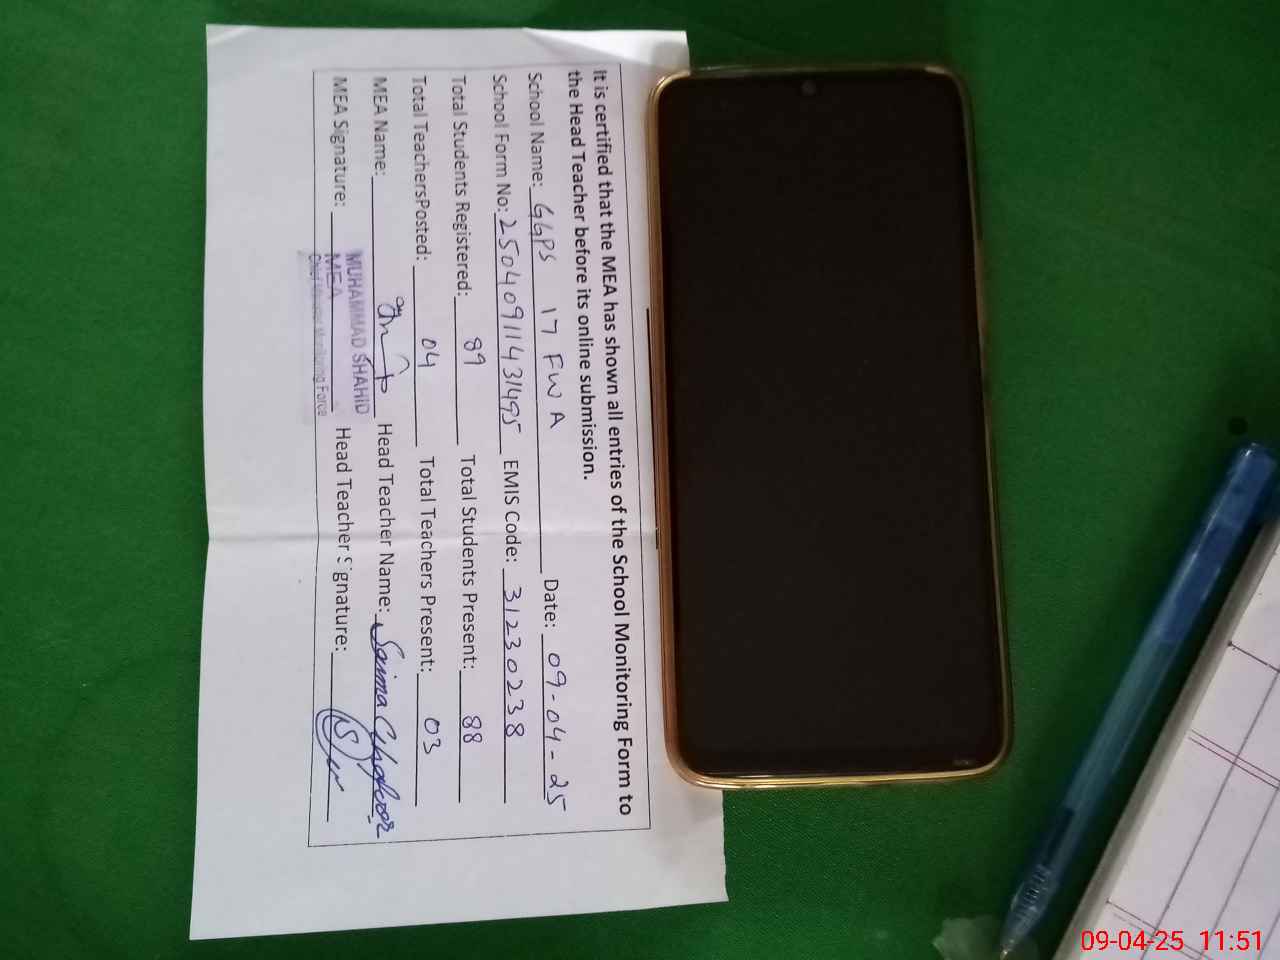 It is certified that the MEA has shown all entries of the School Monitoring Form to
the Head Teacher before its online submission.
School Name: GGPS 17 FWA Date: 09-04-25
School Form No: 25040911431495 EMIS Code: 31230238
Total Students Registered: 89 Total Students Present: 88
Total TeachersPosted: 04 Total Teachers Present: 03
MEA Name: Head Teacher Name: Saima
MEA Signature: Head Teacher Signature:
MUHAMMAD SHAHID
MEA
Chief Minister Monitoring Force
09-04-25 11:51